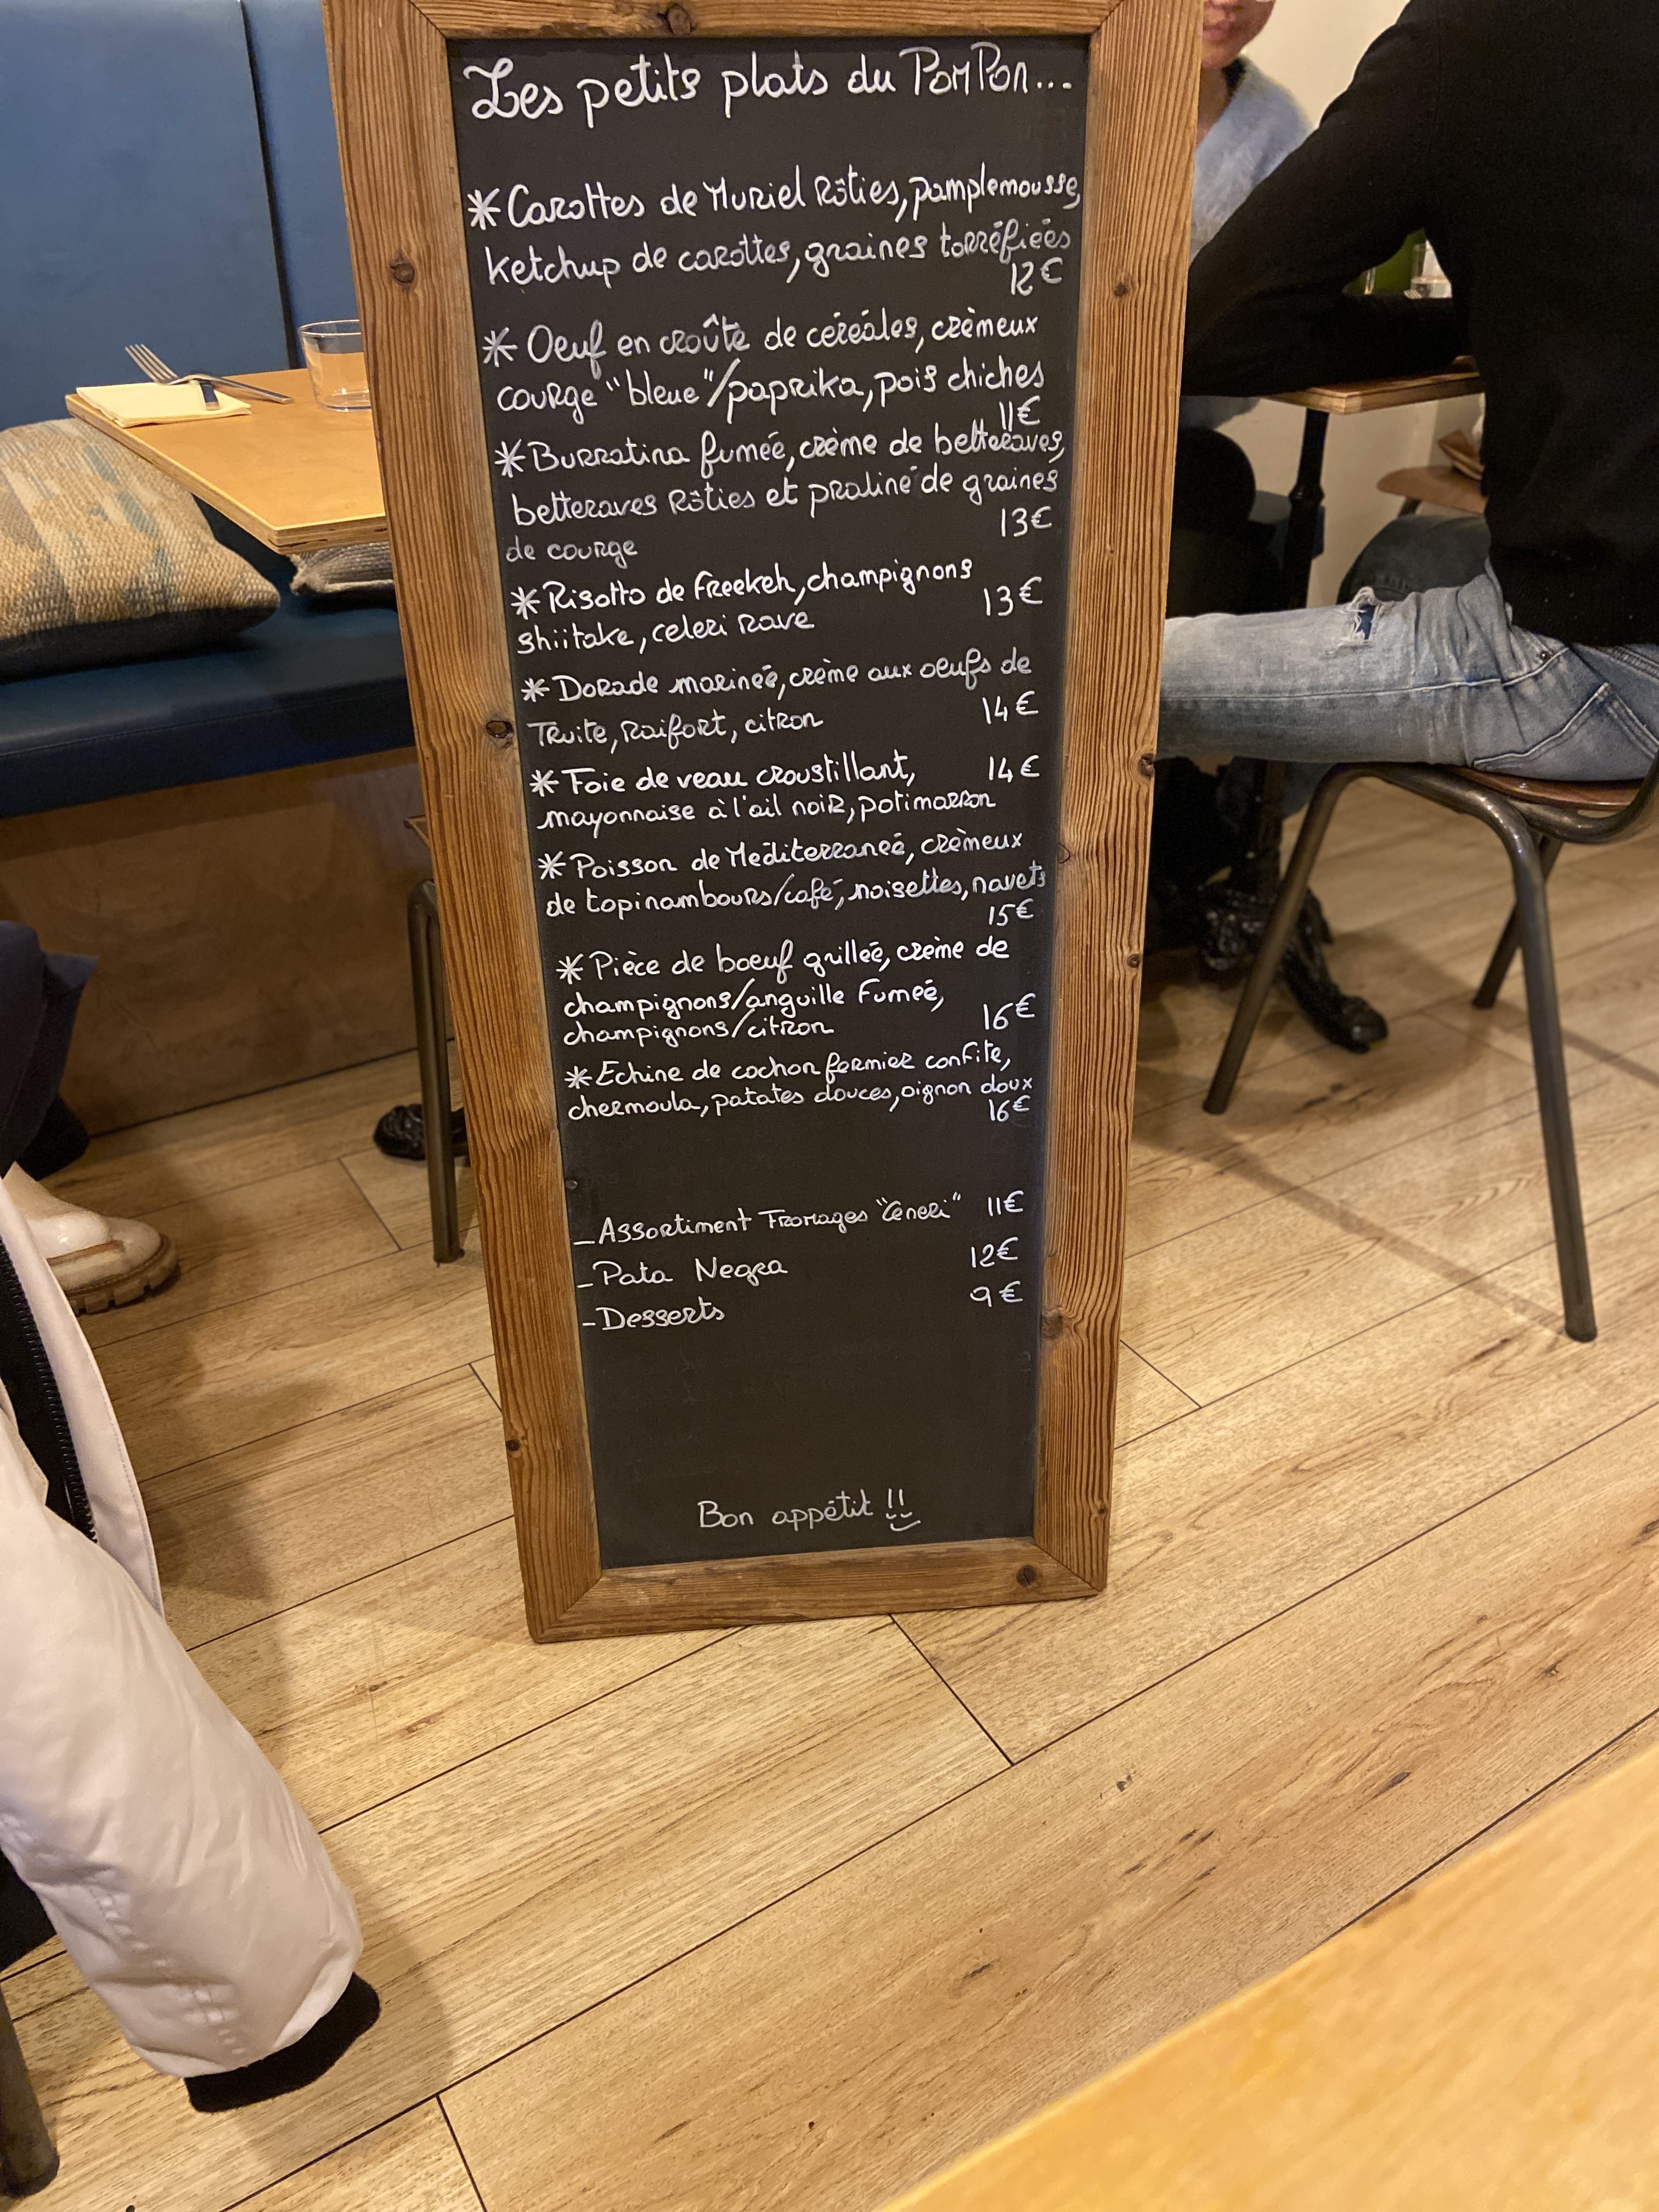 Les petits plats du PomPon...
*Carottes de Muriel Rôties, pamplemousse,
ketchup de carottes, graines torréfiées
12€
* Oeuf en croûte de céréales, crèmeux
courge "bleue"/paprika, pois chiches
11€
*Burratina fumée, crème de betteraves,
betteraves Rôties et praliné de graines
de courge 13€
*Risotto de Freekeh, champignons
shiitake, celeri rave 13€
*Dorade marineé, crème aux oeufs de
Truite, raifort, citron 14€
*Foie de veau croustillant, 14€
mayonnaise à l'ail noir, potimarron
*Poisson de Méditerraneé, crèmeux
de topinambours/café, noisettes, navets
15€
*Pièce de boeuf grilleé, crème de
champignons/anguille Fumeé,
champignons/citron 16€
*Echine de cochon fermier confite,
chermoula, patates douces, oignon doux
16€
-Assortiment Fromages 11€
-Pata Negra 12€
-Desserts 9€
Bon appétit !!